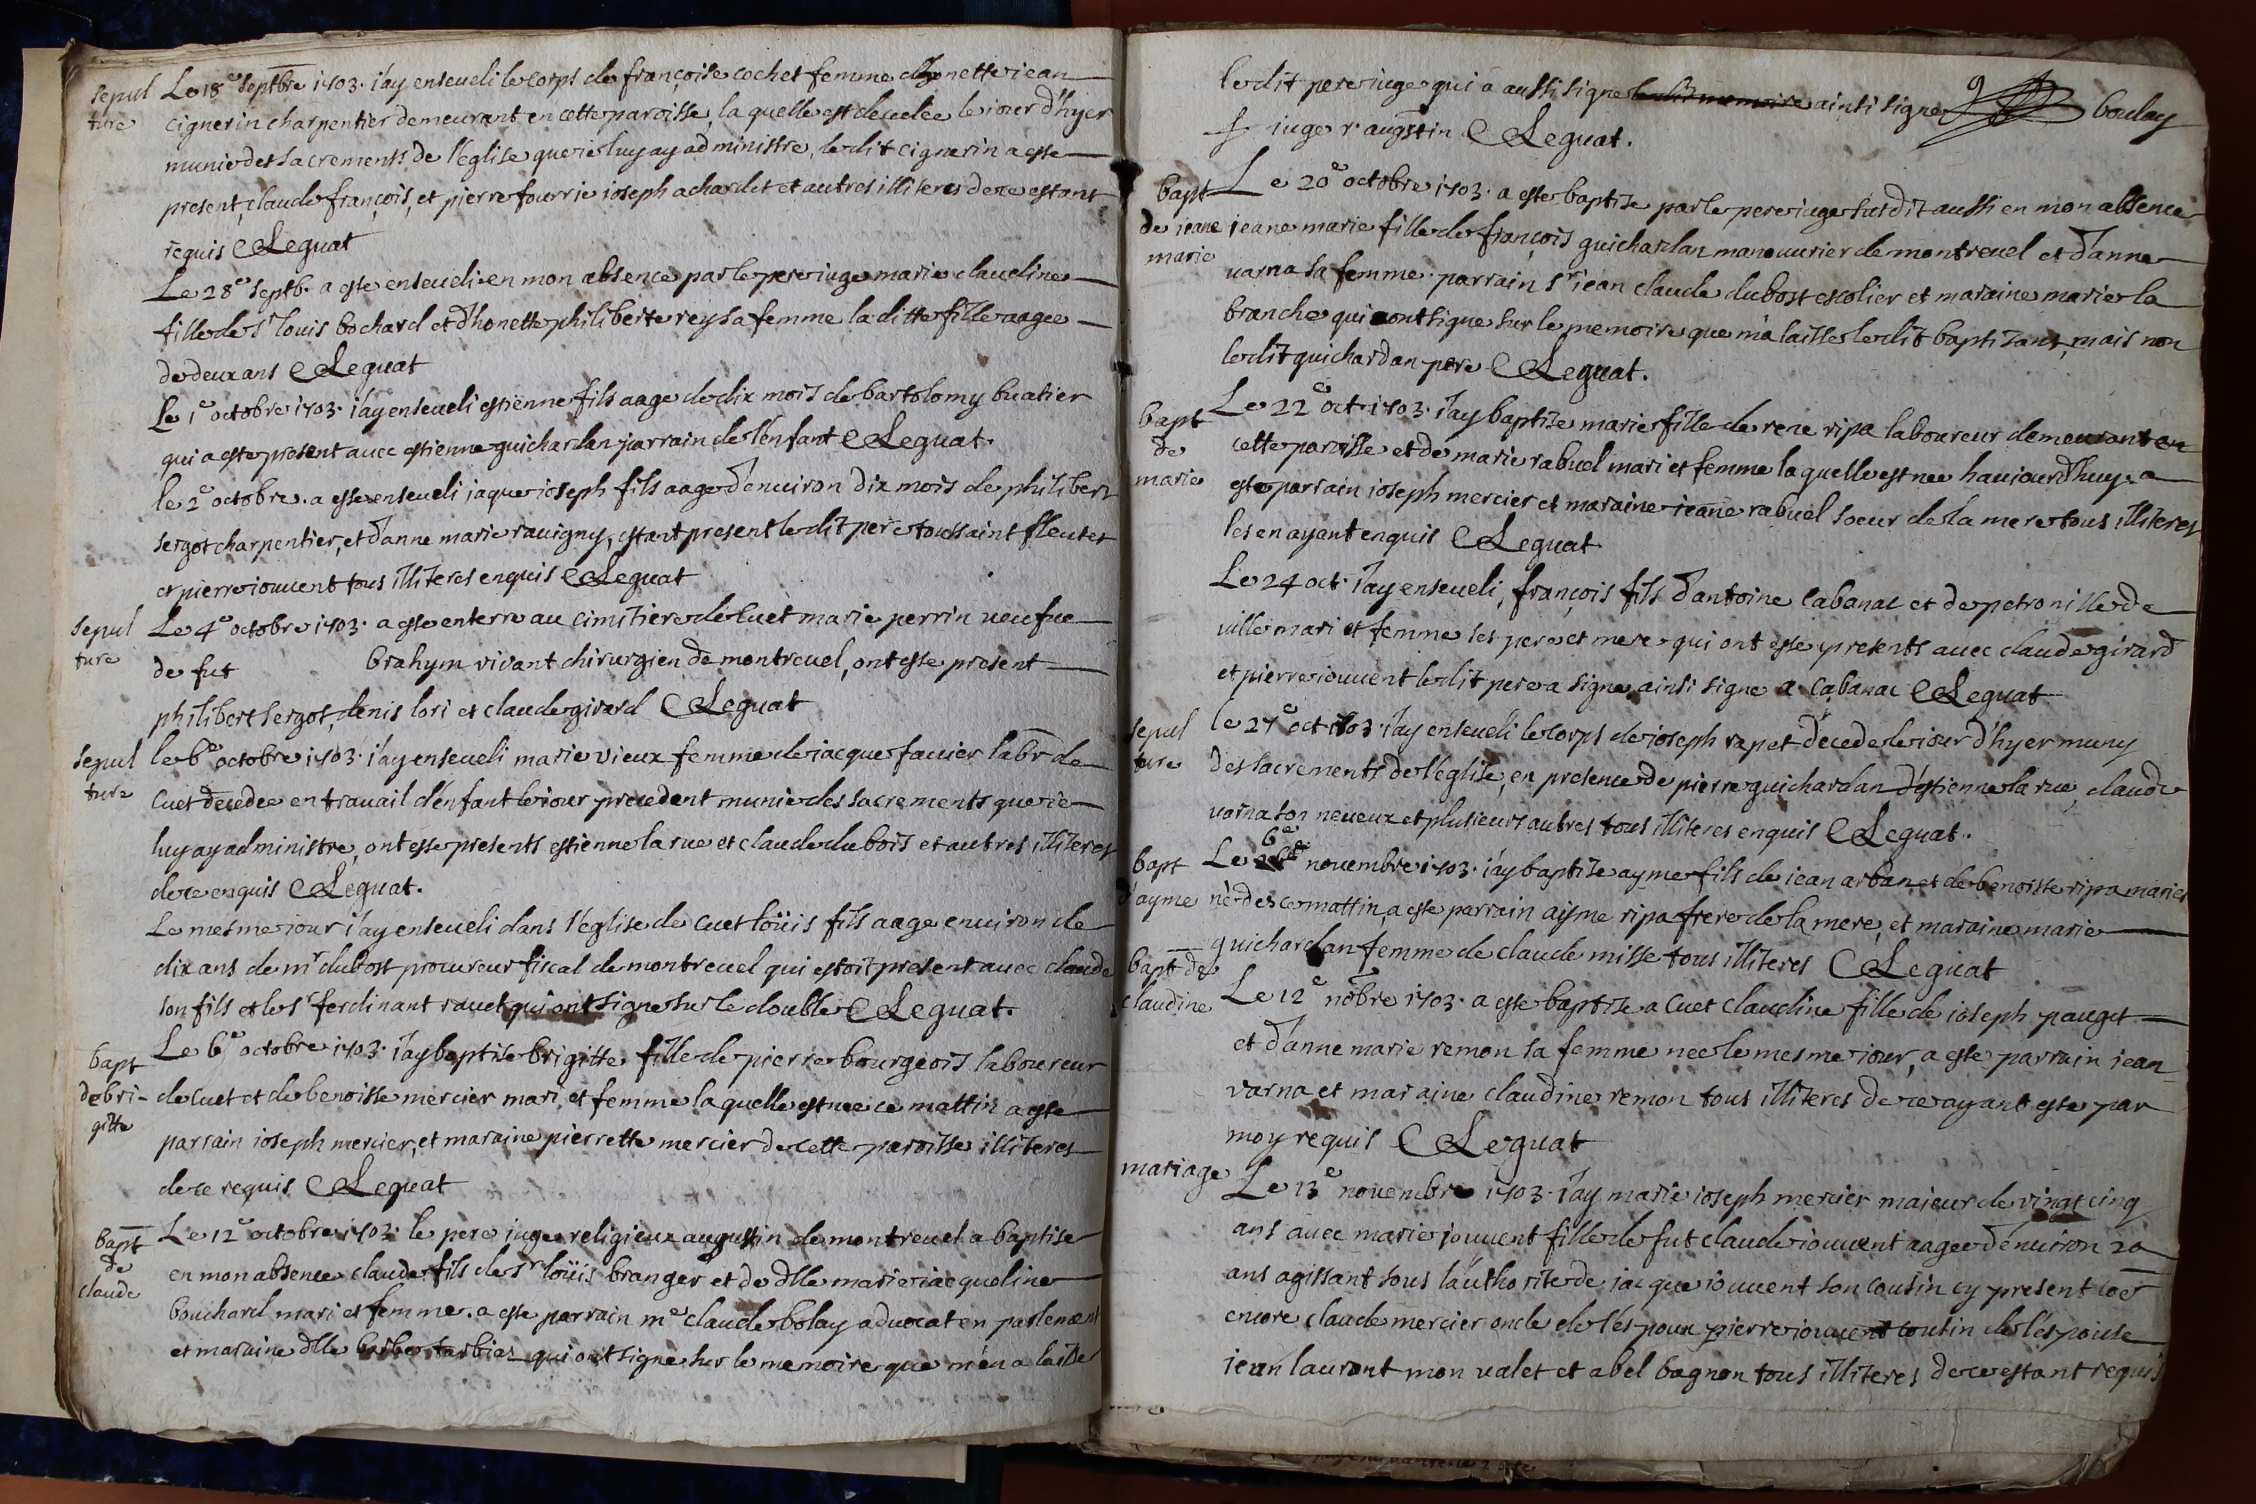 sepul
ture
Le 18e septbre 1703. i'ay enseueli le corps de françoise cochet femme d'honette iean
cignerin charpentier demeurant en cette paroisse, la quelle est decedee le iour d'hyer
munie des sacrements de l'eglise que ie luy ay administre, le dit cignerin a este
present, claude françois, et pierre fourrie ioseph achardet et autres illiteres de ce estant
requis Leguat
Le 28e septb. a este enseueli en mon absence par le pere iuge marie claudine
fille de sr louis bochard et d'honette philiberte rey sa femme la ditte fille aagee
de deux ans Leguat
Le 1e octobre 1703. i'ay enseueli estienne fils aage de dix mois de bartolomy buatier
qui a este present auec estienne guichardan parrain de l'enfant Leguat.
le 2e octobre. a este enseueli iaque ioseph fils aage d'enuiron dix mois de philibert
sergot charpentier, et d'anne marie rauigny, estant present le dit pere toussaint fleutet
et pierre iouuent tous illiteres enquis Leguat
sepul
ture
Le 4e octobre 1703. a este enterre au cimitiere de cuet marie perrin ueufue
de fut brahym vivant chirurgien de montreuel, ont este present
philibert sergot, denis lori et claude girard Leguat
sepul
ture
le 6e octobre 1703. i'ay enseueli marie vieux femme de iacque fauier labr de
Cuet decedee en trauail d'enfant le iour precedent munie des sacrements que ie
luy ay administre, ont este presents estienne la rue et claude dubois et autres illiteres
de ce enquis Leguat.
Le mesme iour i'ay enseueli dans l'eglise de cuet loüis fils aage enuiron de
dix ans de mr dubost procureur fiscal de montreuel qui estoit present auec claude
son fils et le sr ferdinant rauet qui ont signe sur le double Leguat.
bapt
de bri-
gitte
Le 6e octobre 1703. i'ay baptise brigitte fille de pierre bourgeois laboureur
de cuet et de benoisse mercier mari et femme la quelle est nee ce mattin a este
parrain ioseph mercier, et maraine pierrette mercier de cette paroisse illiteres
de ce requis Leguat
bapt
de
claude
Le 12e octobre 1703. le pere iuge religieux augustin de montreuel a baptise
en mon absence claude fils de sr loüis branger et de dlle marie iacqueline
bouchard mari et femme. a este parrain me claude bolay aduocat en parlement
et maraine dlle barbe tarbier qui ont signe sur le memoire que m'en a laisse
le dit pere iuge qui a aussi signe le dit memoire ainsi signe boulay
f iuge r. augstin Leguat.
bapt
de ieane
marie
Le 20e octobre 1703. a este baptise par le pere iuge susdit aussi en mon absence
ieane marie fille de françois guichardan manouurier de montreuel et d'anne
uarna sa femme. parrain sr iean claude dubost escolier et maraine marie la
branche qui ont signe sur le memoire que m'a laisse le dit baptizant, mais non
le dit guichardan pere Leguat.
bapt
de
marie
Le 22e oct. 1703. i'ay baptise marie fille de rene ripa laboureur demeurant en
cette paroisse et de marie rabuel mari et femme la quelle est nee haujourd'huy. a
este parrain ioseph mercier et maraine ieane rabuel soeur de la mere tous illiteres
les en ayant enquis Leguat
Le 24 oct. i'ay enseueli, françois fils d'antoine cabanac et de petronille de
uille mari et femme ses pere et mere qui ont este presents auec claude girard
et pierre iouuent le dit pere a signe ainsi signe a. cabanac Leguat
sepul
ture
le 27e oct 1703. i'ay enseueli le corps de ioseph rapet decede le iour d'hyer muny
des sacrements de l'eglise, en presence de pierre guichardan d'estienne la rue, claude
uarna son neueux et plusieurs autres tous illiteres enquis Leguat.
bapt
d'ayme
Le 6e nouembre 1703. i'ay baptise ayme fils de iean arban et de benoiste ripa maries
né des ce mattin, a este parrain ayme ripa frere de la mere, et maraine marie
guichardan femme de claude misse tous illiteres Leguat
bapt de
claudine
Le 12e nobre 1703. a este baptize a cuet claudine fille de ioseph pauget
et d'anne marie remon sa femme nee le mesme iour, a este parrain iean
varna et maraine claudine remon tous illiteres de ce ayant este par
moy requis Leguat
mariage
Le 13e nouembre 1703. i'ay marie ioseph mercier maieur de vingt cinq
ans auec marie iouuent fille de fut claude iouuent aagee d'enuiron 20
ans agissant sous l'authorite de iacque iouuent son cousin cy present
encore claude mercier oncle de l'espoux pierre iouuent cousin de l'espouse
iean laurant mon ualet et abel bagnon tous illiteres de ce estant requis